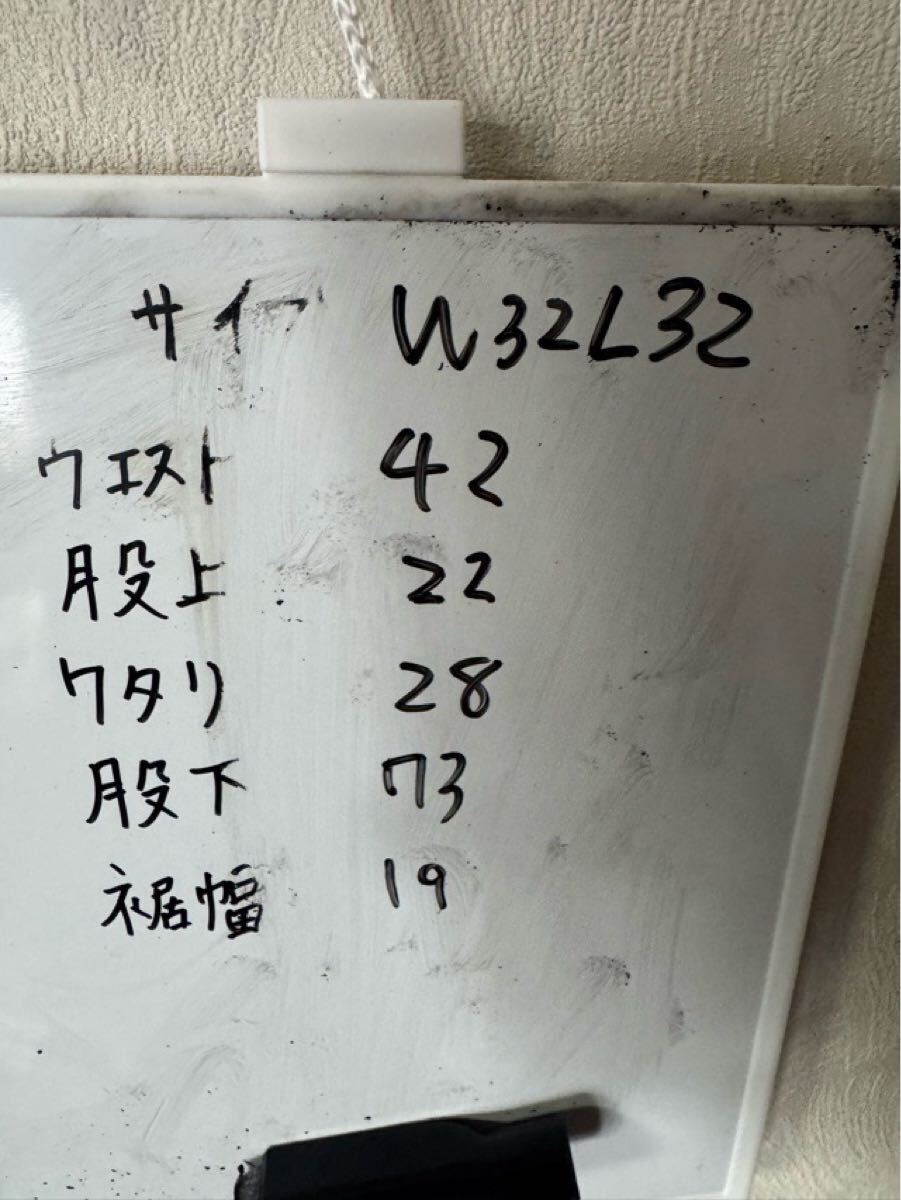 サイズ W32L32
ウエスト 42
股上 22
ワタリ 28
股下 73
裾幅 19